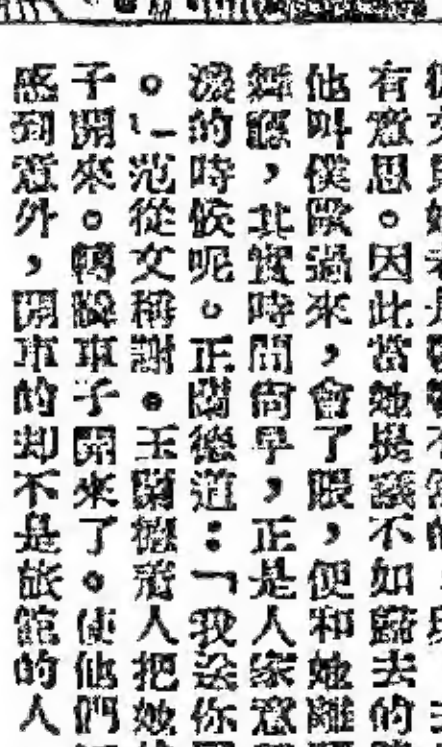 有意思。因此當她提議不如歸去的
他叫僕歐過來,會了賬,便和她離
舞廳,其實時間尚早,正是人家意
濃的時候呢。正蘭德道:「我送你
。」范從文稱謝。王蘭德着人把她
子開來。轉瞬車子開來了。使他們
感到意外,開車的却不是旅館的人